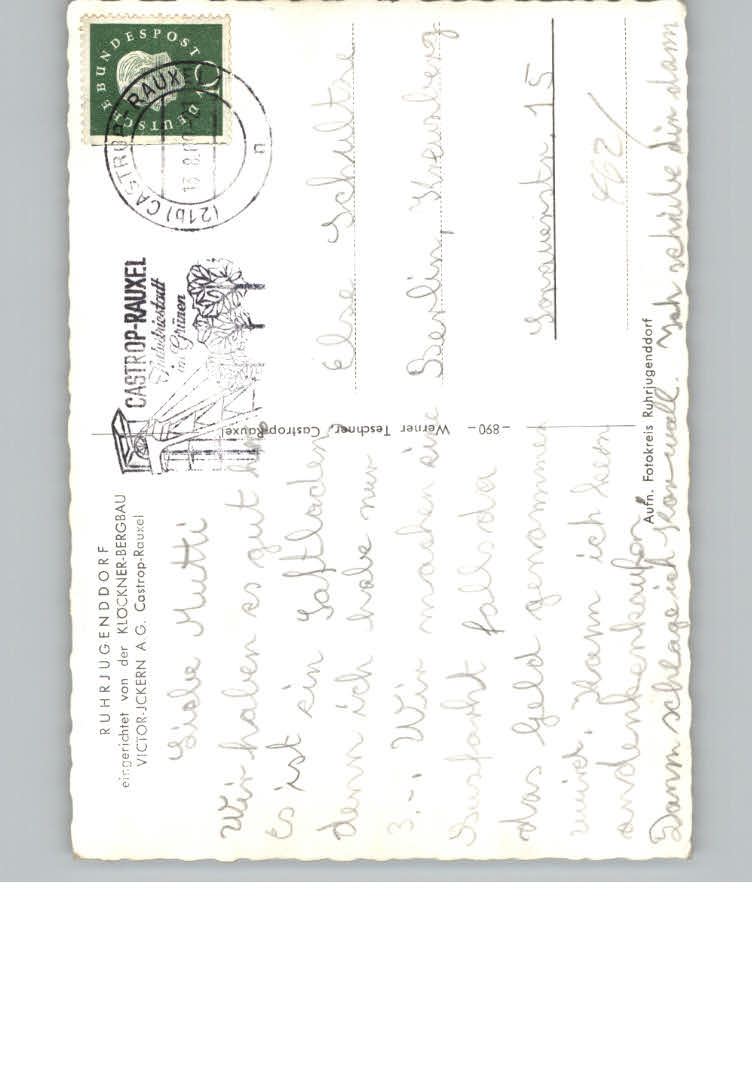 RUHRJUGENDDORF
eingerichtet von der KLÖCKNER-BERGBAU
VICTOR-JCKERN A G. Castrop-Rauxel
Liebe Mutti
Wir haben es gut hir
Es ist ein Saftladen
denn ich habe nur
3.-. Wir machen eine
Busfarht falls da
das Geld genommen
wird. Kann ich kein
andenkenkaufen
Dann schlage ich Kon wall. Ich schribe dir dann
CASTROP-RAUXEL
Industriestadt
im Grünen
DEUTSCHE BUNDESPOST
(21b) CASTROP-RAUXEL
13.8.
u
Else Schultze
Berlin, Kreuzberg
15
Werner Teschner, Castrop-Rauxel
- 890 -
Aufn. Fotokreis Ruhrjugenddorf